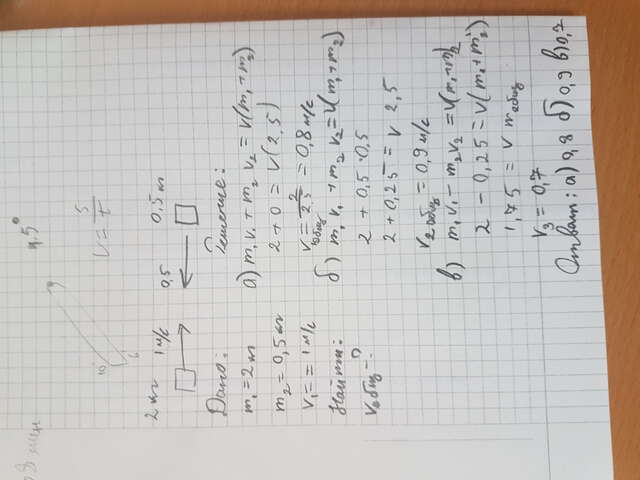 4.5°
10 9
6
v = s/t
2 кг 1 м/с 0,5 0,5 кг
Дано: Решение:
m₁ = 2 кг
m₂ = 0,5 кг
v₁ = = 1 м/с
Найти:
v общ - ?
а) m₁v₁ + m₂v₂ = v(m₁+m₂)
2 + 0 = v(2,5)
v₁общ = 2/2,5 = 0,8 м/с
б) m₁v₁ + m₂v₂ = v(m₁+m₂)
2 + 0,5 · 0,5
2 + 0,25 = v 2,5
v₂ общ = 0,9 м/с
в) m₁v₁ - m₂v₂ = v(m₁+m₂)
2 - 0,25 = v(m₁+m₂)
1,75 = v m общ
v₃ = 0,7
Ответ: а) 0,8 б) 0,9 в) 0,7